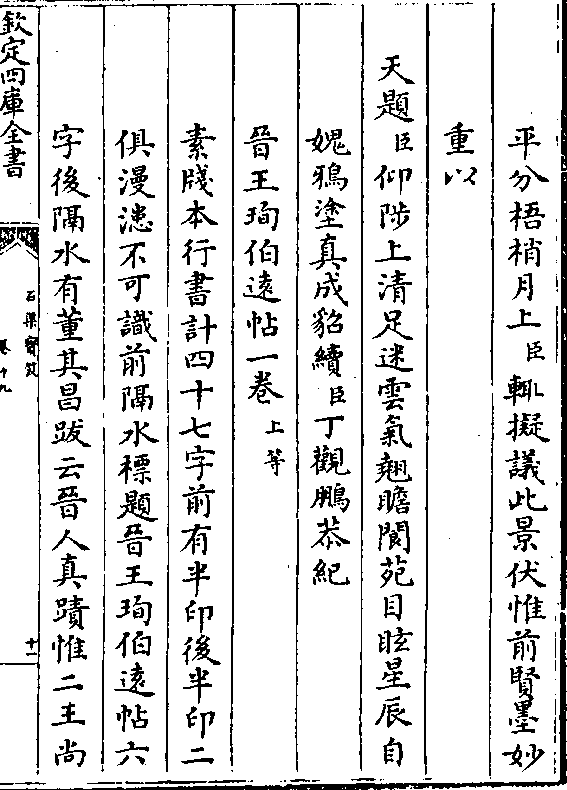 平分梧梢月上臣輒擬議此景伏惟前賢墨妙
重以
天題臣仰陟上清足迷雲氣翹瞻閬苑目眩星辰自
媿鴉塗真成貂續臣丁觀鵬恭紀
晉王珣伯遠帖一卷上等
素牋本行書計四十七字前有半印後半印二
俱漫漶不可識前隔水標題晉王珣伯遠帖六
字後隔水有董其昌跋云晉人真蹟惟二王尚
欽定四庫全書
石渠寶笈
卷十九
十一